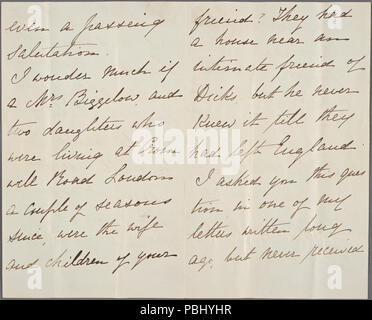 even a passing
salutation.
I wonder much if
a Mrs Biggelow, and
two daughters who
were living at Crom
well Road London
a couple of seasons
since, were the wife
and children of your
friend? They had
a house near an
intimate friend of
Dick's. but he never
knew it till they
had left England.
I asked you this ques
tion in one of my
letters written long
ago, but never received
alamy
PBHYHR